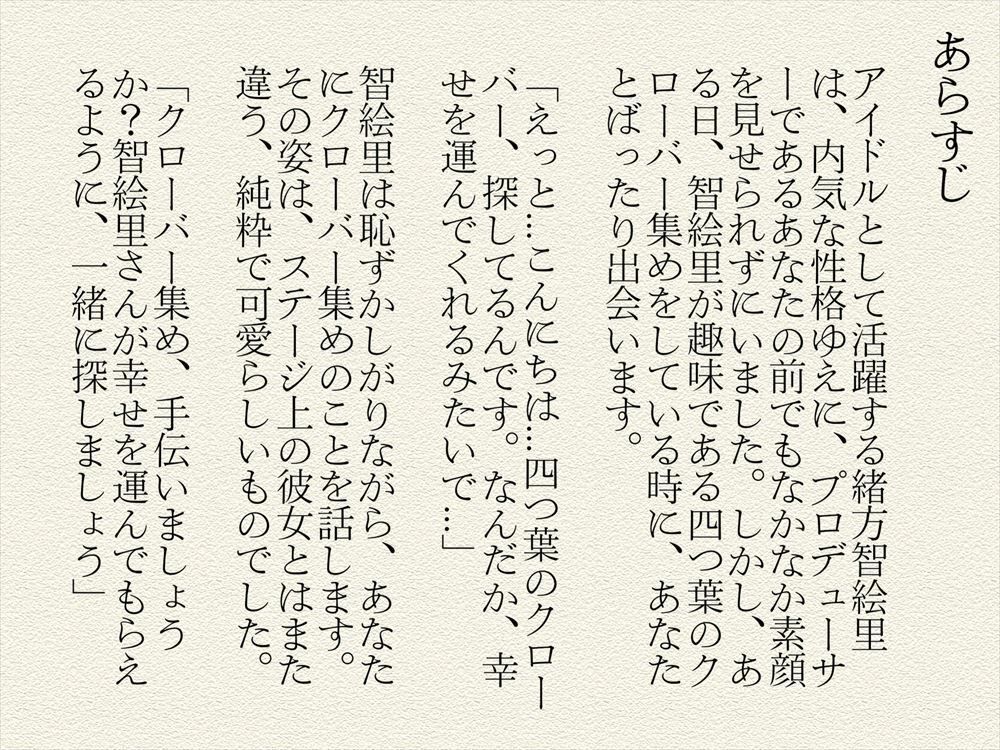 あらすじ
アイドルとして活躍する緒方智絵里
は、内気な性格ゆえに、プロデューサ
ーであるあなたの前でもなかなか素顔
を見せられずにいました。しかし、あ
る日、智絵里が趣味である四つ葉のク
ローバー集めをしている時に、あなた
とばったり出会います。
「えっと…こんにちは…四つ葉のクロー
バー、探してるんです。なんだか、幸
せを運んでくれるみたいで…」
智絵里は恥ずかしがりながら、あなた
にクローバー集めのことを話します。
その姿は、ステージ上の彼女とはまた
違う、純粋で可愛らしいものでした。
「クローバー集め、手伝いましょう
か？智絵里さんが幸せを運んでもらえ
るように、一緒に探しましょう」